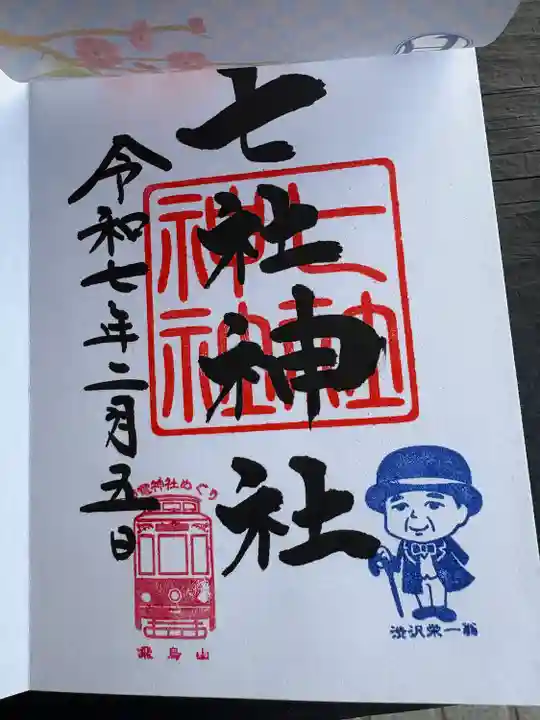 七社神社
七社
神社
令和七年二月五日
神社めぐり
飛鳥山
渋沢栄一翁